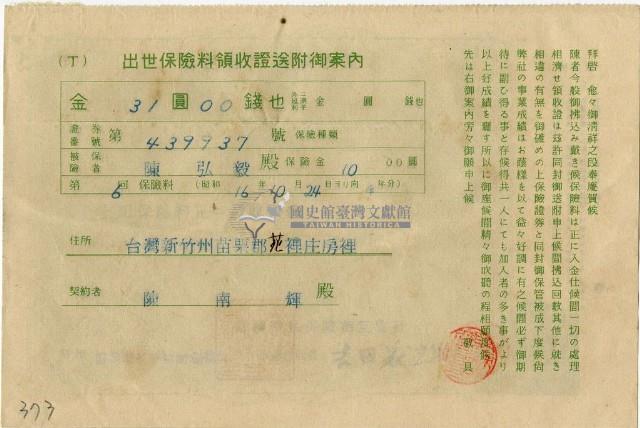 (丁) 出世保險料領收證送附御案內
金 31圓00錢也 金 圓 錢也
證券番號 第 439937 號 保險種類
被保險者 陳弘毅 殿 保險金 10 00圓
第 6 回 保險料 (昭和 16年10月24日ヨリ向 年分)
國史館臺灣文獻館
TAIWAN HISTORICA
住所 台灣新竹州苗栗郡苑裡庄房裡
契約者 陳南輝 殿
拜啓 愈々御淸祥之段奉慶賀候
陳者今般御拂込み戴き候保險料は正に入金仕候間一切の處理
相濟せ領收證は玆許同封御送附申上候間拂込回數其他に就き
相違の有無を御確めの上保險證券と同封御保管被成下度候尙
弊社の事業成績はお蔭樣を以て益々好調に有之候間必ず御期
待に副ひ得る事と存候得共一人にても加入者の多き事がより
以上好成績を齎す所以に御座候間精々御吹聽の程相願度候
先は右御案內旁々御願申上候 敬具
373